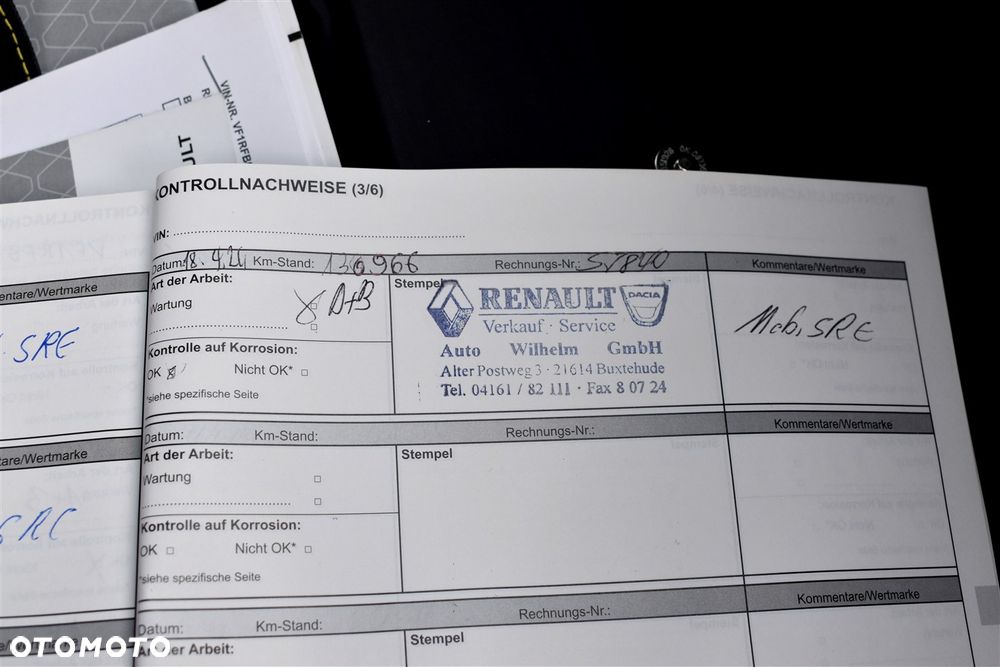 VIN-NR. VF1RFB
ULT
KONTROLLNACHWEISE (3/6)
VIN:
Datum: 18.4.24 Km-Stand: 130966 Rechnungs-Nr.:
Kommentare/Wertmarke
Art der Arbeit:
Wartung A+B
Stempel
RENAULT
DACIA
Verkauf · Service
Auto Wilhelm GmbH
Alter Postweg 3 · 21614 Buxtehude
Tel. 04161 / 82 111 · Fax 8 07 24
Mob. SRE
Kontrolle auf Korrosion:
OK Nicht OK*
*siehe spezifische Seite
mentare/Wertmarke
SRE
Datum: Km-Stand: Rechnungs-Nr.:
Kommentare/Wertmarke
Art der Arbeit:
Wartung
Stempel
Kontrolle auf Korrosion:
OK Nicht OK*
*siehe spezifische Seite
tare/Wertmarke
Datum: Km-Stand: Rechnungs-Nr.:
Kommentare/Wertmarke
Art der Arbeit:
Stempel
e/Wertmarke
OTOMOTO